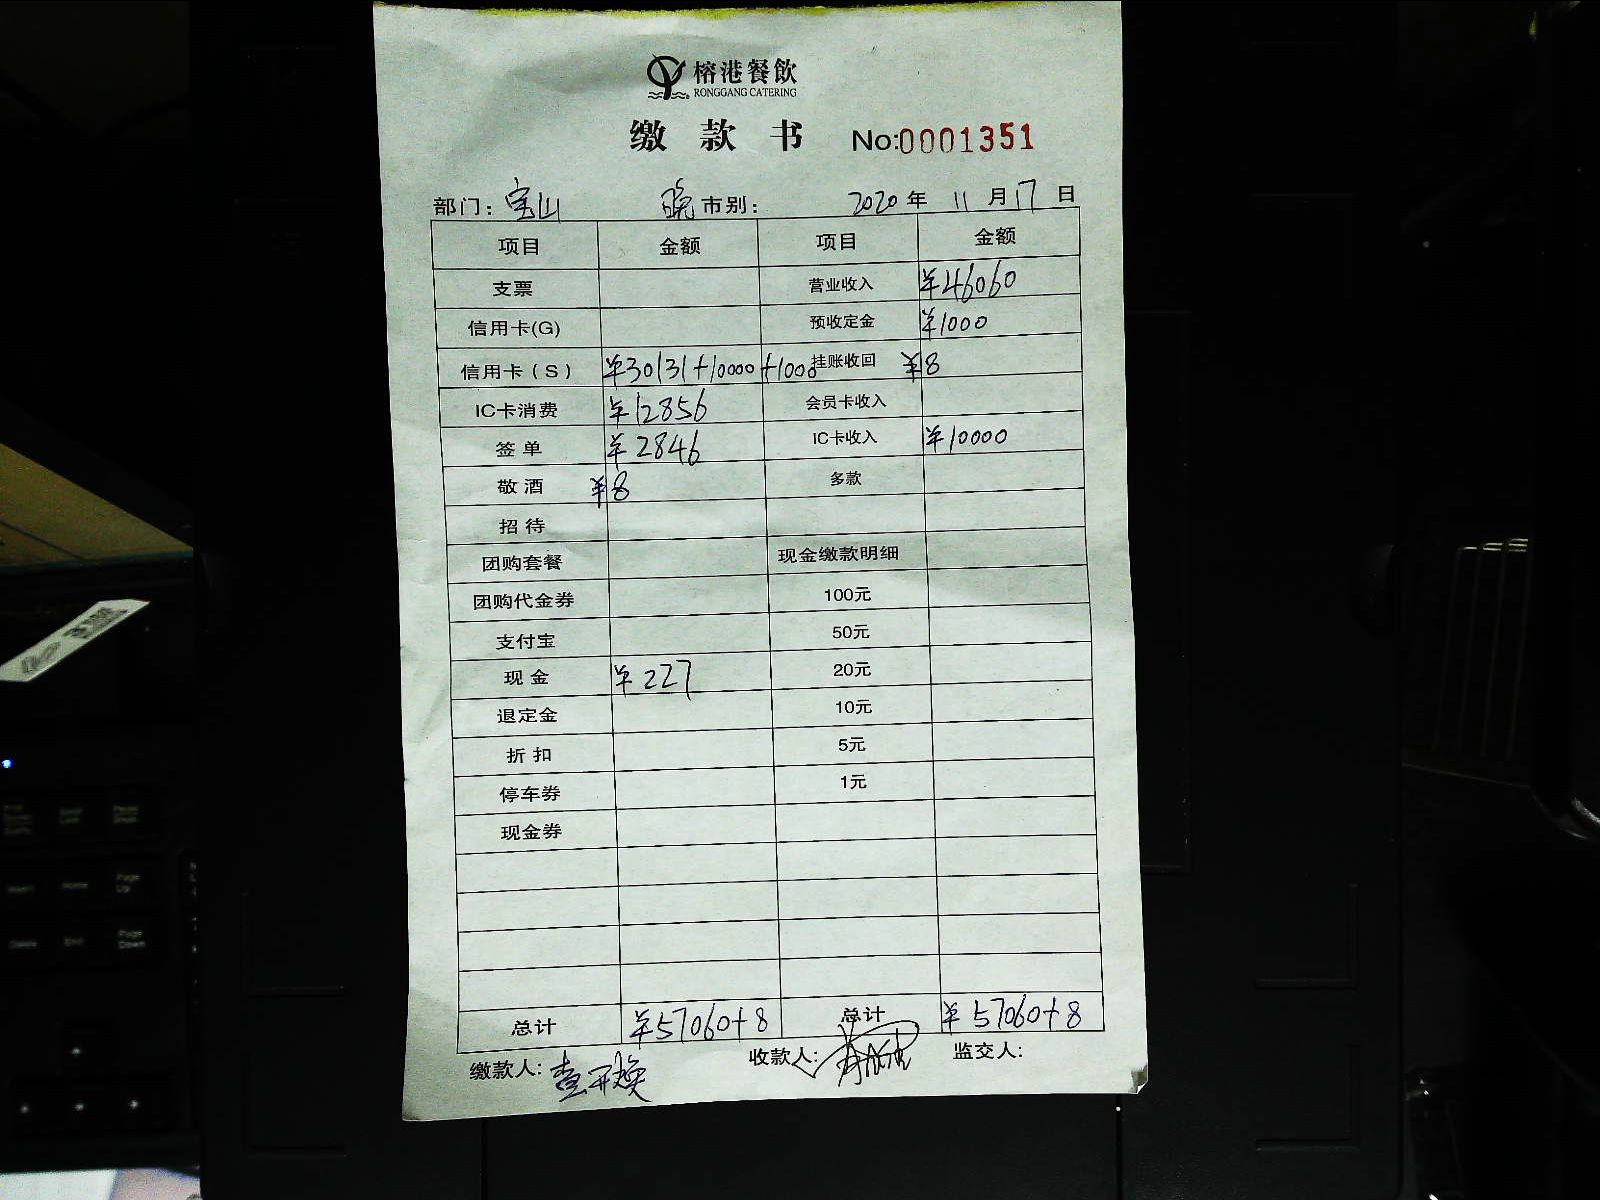 榕港餐飲
RONGGANG CATERING
缴款书 No:0001351
部门：宝山 晚市别： 2020年11月17日
项目 金额 项目 金额
支票 营业收入 ¥46060
信用卡(G) 预收定金 ¥1000
信用卡（S） ¥30131+10000+1000 挂账收回 ¥8
IC卡消费 ¥12856 会员卡收入
签单 ¥2846 IC卡收入 ¥10000
敬酒 ¥8 多款
招待
团购套餐 现金缴款明细
团购代金券 100元
支付宝 50元
现金 ¥227 20元
退定金 10元
折扣 5元
停车券 1元
现金券
总计 ¥57060+8 总计 ¥57060+8
缴款人: 收款人: 监交人:
Home
Page Up
End
Page Down